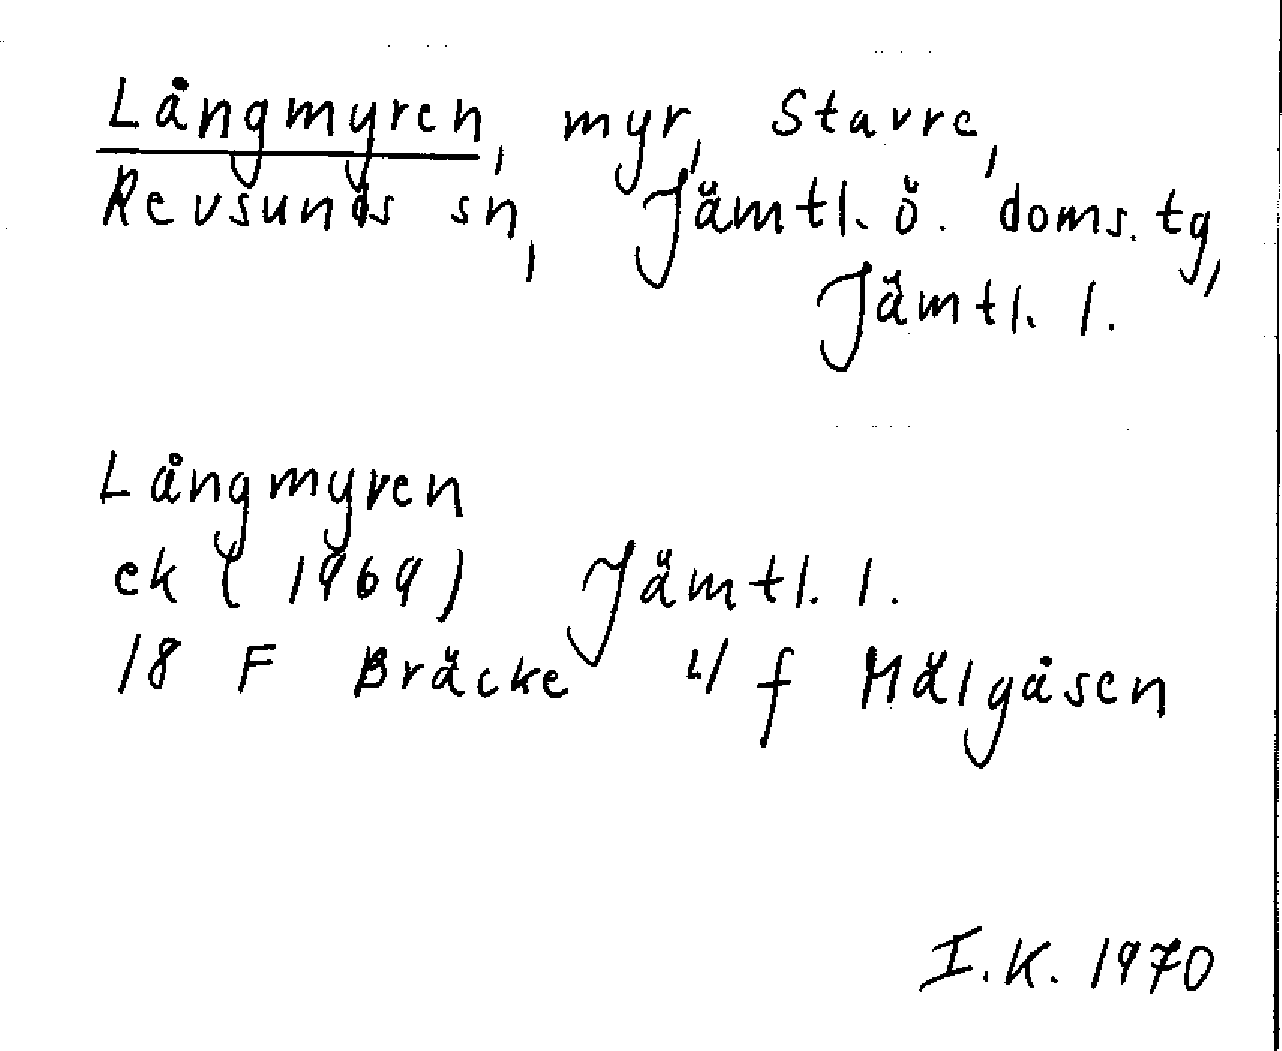 Långmyren, myr, Stavre,
Revsunds sn, Jämtl. ö. doms. tg,
Jämtl. l.
Långmyren
ek (1969) Jämtl. l.
18 F Bräcke 4/ f Hälgåsen
I.K. 1970